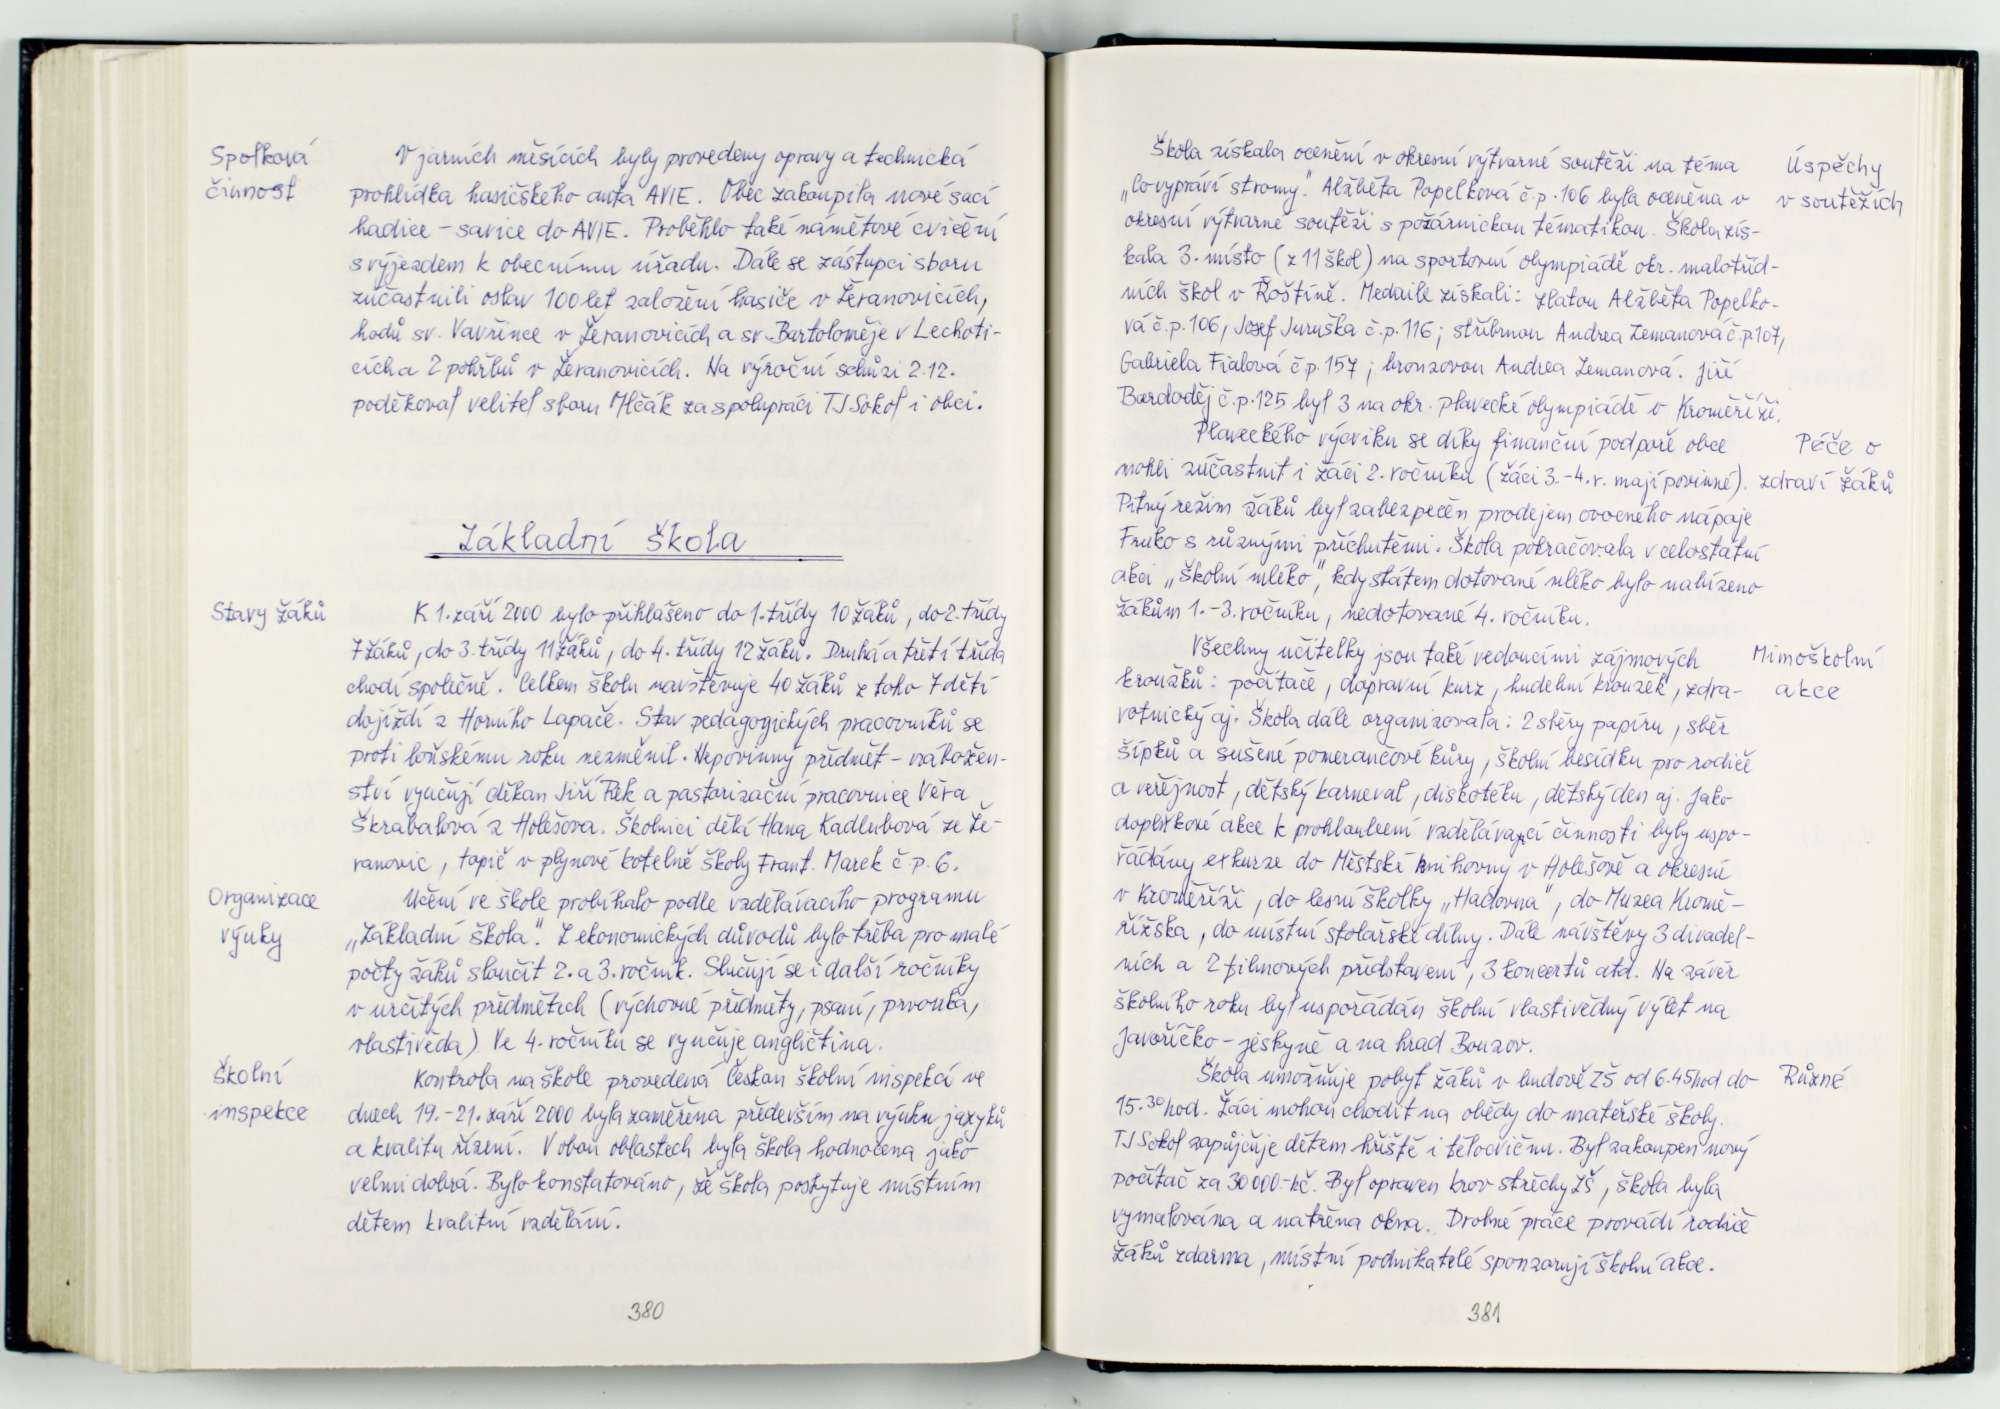 Spolková
činnost
V jarních měsících byly provedeny opravy a technická
prohlídka hasičského auta AVIE. Obec zakoupila nové sací
hadice – savice do AVIE. Proběhlo také námětové cvičení
s výjezdem k obecnímu úřadu. Dále se zástupci sboru
zúčastnili oslav 100 let založení hasičů v Žeranovicích,
hodů sv. Vavřince v Žeranovicích a sv. Bartoloměje v Lechoti-
cích a 2 pohřbů v Žeranovicích. Na výroční schůzi 2.12.
poděkoval velitel sboru Mlčák za spolupráci TJ Sokol i obci.
Základní škola
Stavy žáků
K 1. září 2000 bylo přihlášeno do 1. třídy 10 žáků, do 2. třídy
7 žáků, do 3. třídy 11 žáků, do 4. třídy 12 žáků. Druhá a třetí třída
chodí společně. Celkem školu navštěvuje 40 žáků z toho 7 dětí
dojíždí z Horního Lapače. Stav pedagogických pracovníků se
proti loňskému roku nezměnil. Nepovinný předmět – nábožen-
ství vyučují děkan Jiří Rek a pastorizační pracovnice Věra
Škrabalová z Holešova. Školnici dělá Hana Kadlubová ze Že-
ranovic, topič v plynové kotelně školy Frant. Marek č p. 6.
Organizace
výuky
Učení ve škole probíhalo podle vzdělávacího programu
„Základní škola“. Z ekonomických důvodů bylo třeba pro malé
počty žáků sloučit 2. a 3. ročník. Slučují se i další ročníky
v určitých předmětech (výchovné předměty, psaní, prvouka,
vlastivěda). Ve 4. ročníku se vyučuje angličtina.
Školní
inspekce
Kontrola na škole provedená Českou školní inspekcí ve
dnech 19.–21. září 2000 byla zaměřena především na výuku jazyků
a kvalitu řízení. V obou oblastech byla škola hodnocena jako
velmi dobrá. Bylo konstatováno, že škola poskytuje místním
dětem kvalitní vzdělání.
380
Úspěchy
v soutěžích
Škola získala ocenění v okresní výtvarné soutěži na téma
„Co vypráví stromy“. Alžběta Popelková č.p. 106 byla oceněna v
okresní výtvarné soutěži s požárnickou tématikou. Škola zís-
kala 3. místo (z 11 škol) na sportovní olympiádě okr. malotříd-
ních škol v Roštíně. Medaile získali: zlatou Alžběta Popelko-
vá č.p. 106, Josef Juruška č.p. 116; stříbrnou Andrea Zemanová č.p 107,
Gabriela Fialová č p. 157; bronzovou Andrea Zemanová. Jiří
Bardoděj č.p. 125 byl 3 na okr. plavecké olympiádě v Kroměříži.
Péče o
zdraví žáků
Plaveckého výcviku se díky finanční podpoře obce
mohli zúčastnit i žáci 2. ročníku (žáci 3.–4. r. mají povinné).
Pitný režim žáků byl zabezpečen prodejem ovocného nápoje
Fruko s různými příchutěmi. Škola pokračovala v celostátní
akci „Školní mléko“, kdy státem dotované mléko bylo nabízeno
žákům 1.–3. ročníku, nedotované 4. ročníku.
Mimoškolní
akce
Všechny učitelky jsou také vedoucími zájmových
kroužků: počítače, dopravní kurz, hudební kroužek, zdra-
votnický aj. Škola dále organizovala: 2 sběry papíru, sběr
šípků a sušené pomerančové kůry, školní besídku pro rodiče
a veřejnost, dětský karneval, diskotéku, dětský den aj. Jako
doplňkové akce k prohloubení vzdělávací činnosti byly uspo-
řádány exkurze do Městské knihovny v Holešově a okresní
v Kroměříži, do lesní školky „Hadovna“, do Muzea Kromě-
řížska, do místní stolařské dílny. Dále návštěvy 3 divadel-
ních a 2 filmových představení, 3 koncertů atd. Na závěr
školního roku byl uspořádán školní vlastivědný výlet na
Javoříčko – jeskyně a na hrad Bouzov.
Různé
Škola umožňuje pobyt žáků v budově ZŠ od 6.45 hod do
15.30 hod. Žáci mohou chodit na obědy do mateřské školy.
TJ Sokol zapůjčuje dětem hřiště i tělocvičnu. Byl zakoupen nový
počítač za 30 000.-kč. Byl opraven krov střechy ZŠ, škola byla
vymalována a natřena okna. Drobné práce provádí rodiče
žáků zdarma, místní podnikatelé sponzorují školní akce.
381